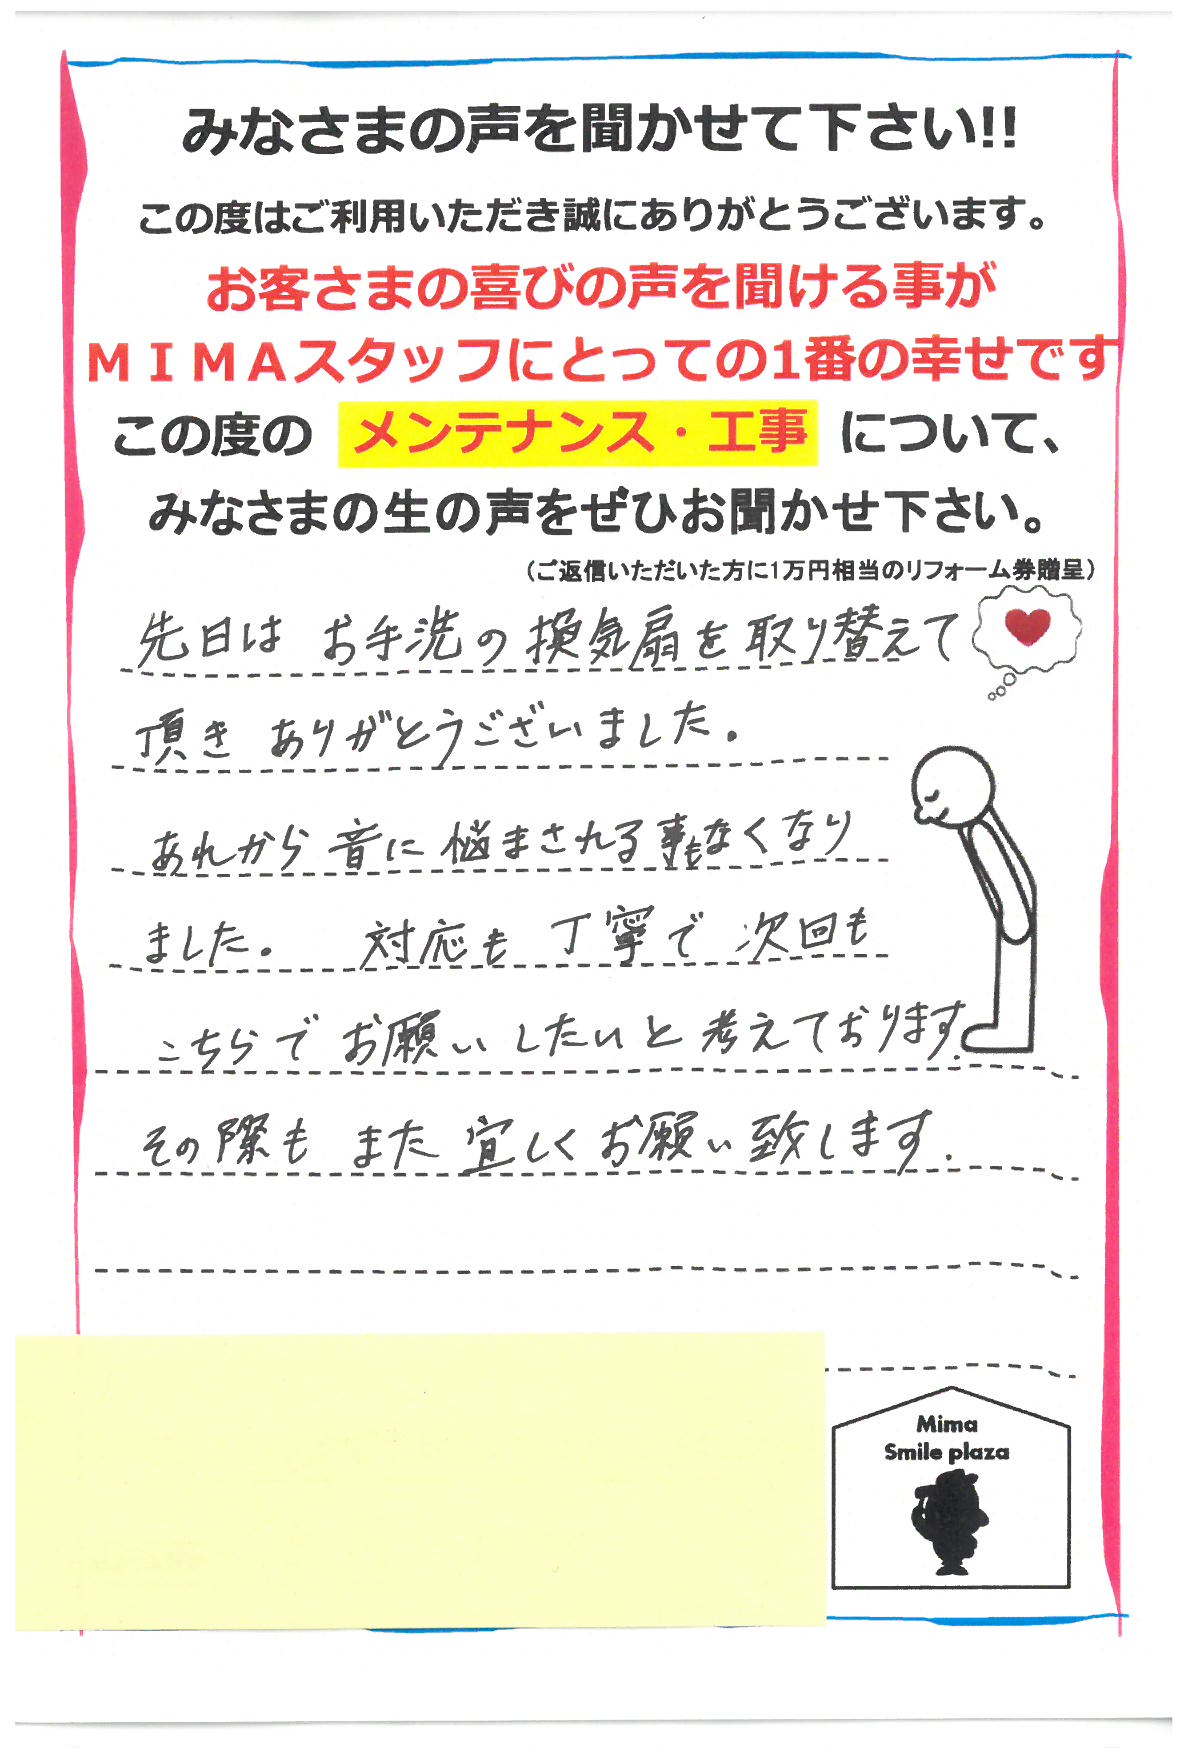 みなさまの声を聞かせて下さい!!
この度はご利用いただき誠にありがとうございます。
お客さまの喜びの声を聞ける事が
ＭＩＭＡスタッフにとっての1番の幸せです
この度の メンテナンス・工事 について、
みなさまの生の声をぜひお聞かせ下さい。
（ご返信いただいた方に1万円相当のリフォーム券贈呈）
先日は お手洗の 換気扇を取り替えて
頂き ありがとうございました。
あれから 音に 悩まされる事もなくなり
ました。 対応も 丁寧で 次回も
こちらで お願いしたいと 考えております.
その際も また 宜しく お願い致します.
Mima
Smile plaza